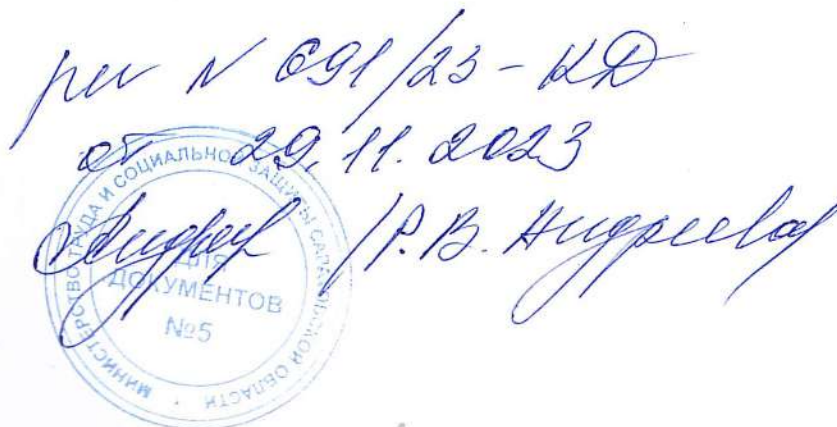 рег N 691/23-КД
от 29.11.2023
/Р.В. Андреева/
МИНИСТЕРСТВО ТРУДА И СОЦИАЛЬНОЙ ЗАЩИТЫ САРАТОВСКОЙ ОБЛАСТИ
ДЛЯ
ДОКУМЕНТОВ
№5